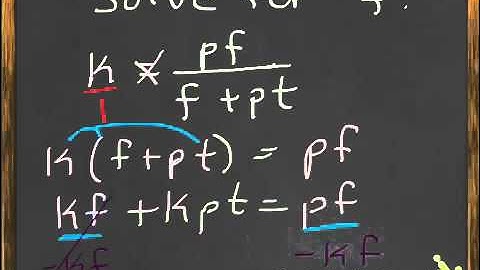 solve for f.
k = pf / f + pt
1
k(f + pt) = pf
kf + kpt = pf
-kf -kf